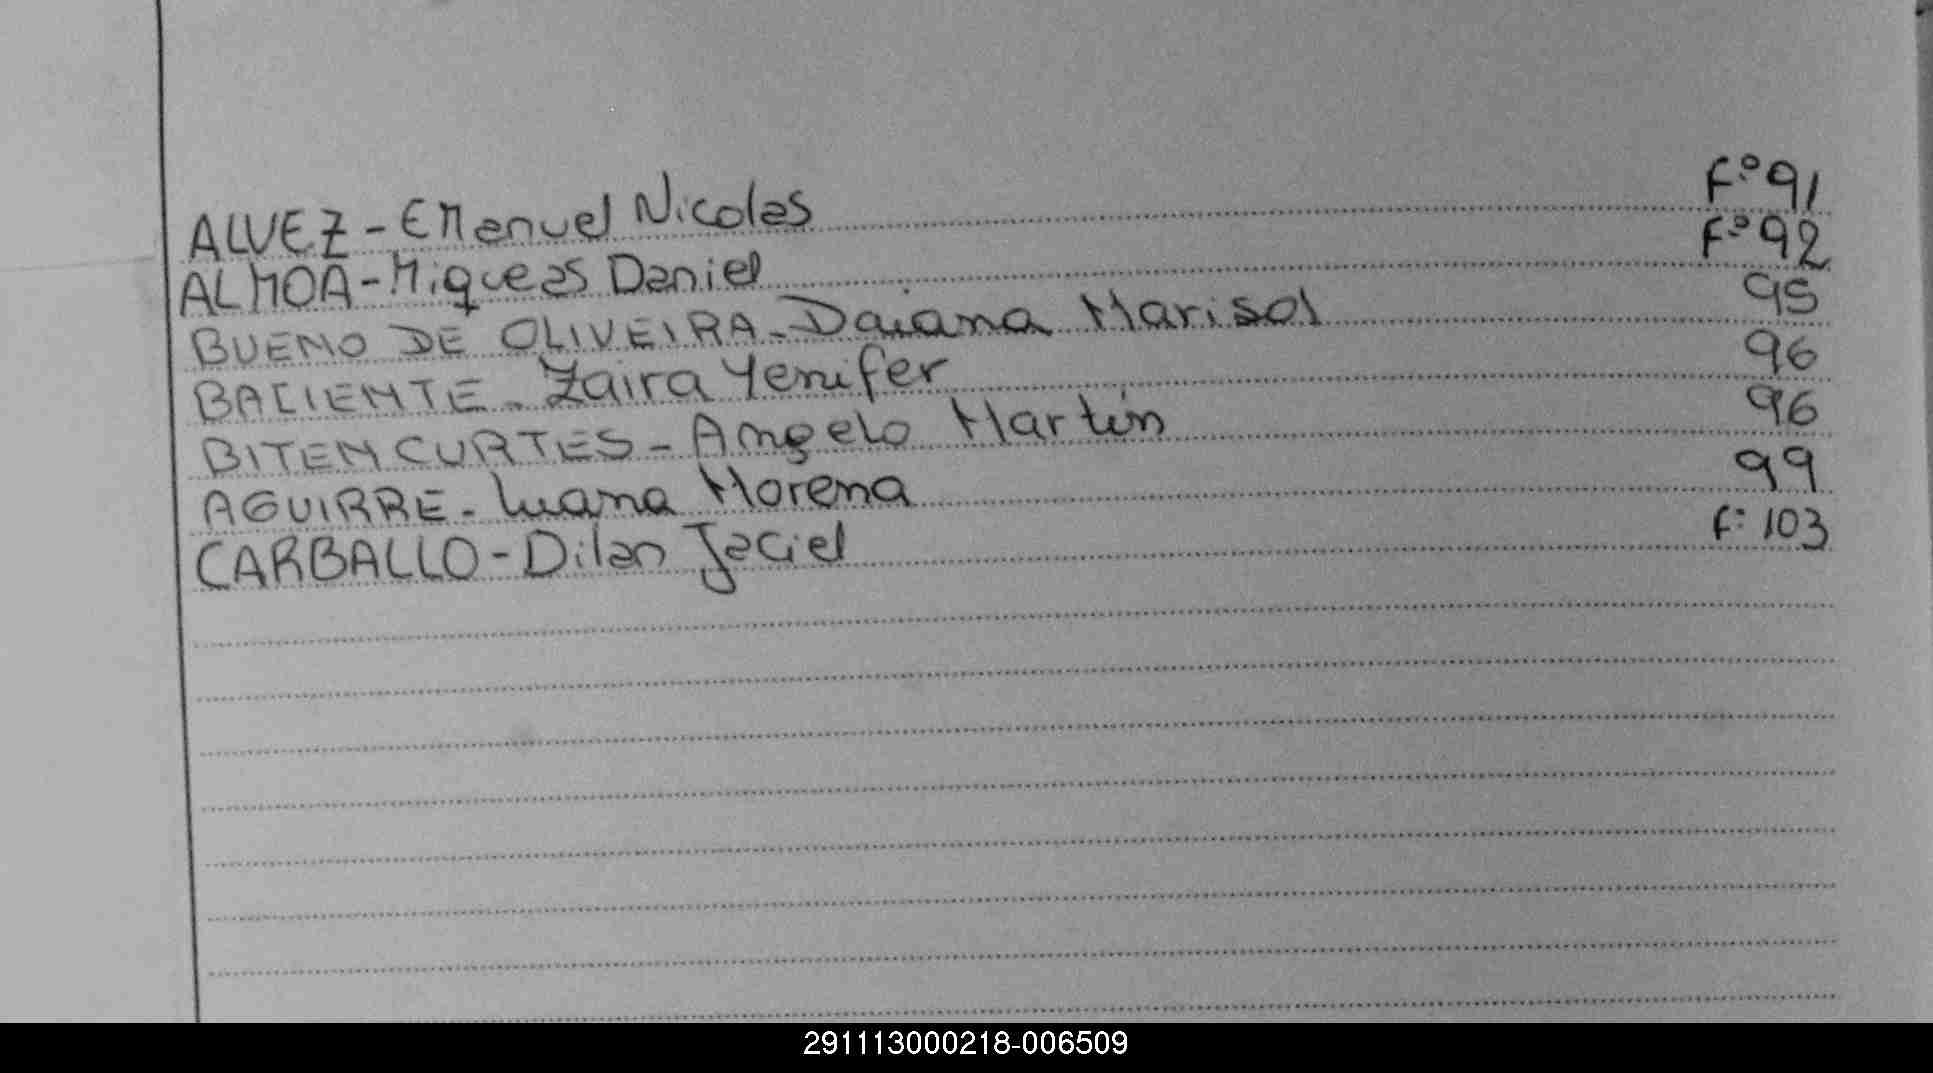 ALVEZ - Emanuel Nicolas F.º 91
ALMOA - Miqueas Daniel F.º 92
BUENO DE OLIVEIRA - Daiana Marisol 95
BALIENTE - Zaira Yenifer 96
BITENCURTES - Angelo Martín 96
AGUIRRE - Luana Morena 99
CARBALLO - Dilan Jaciel F: 103
291113000218-006509